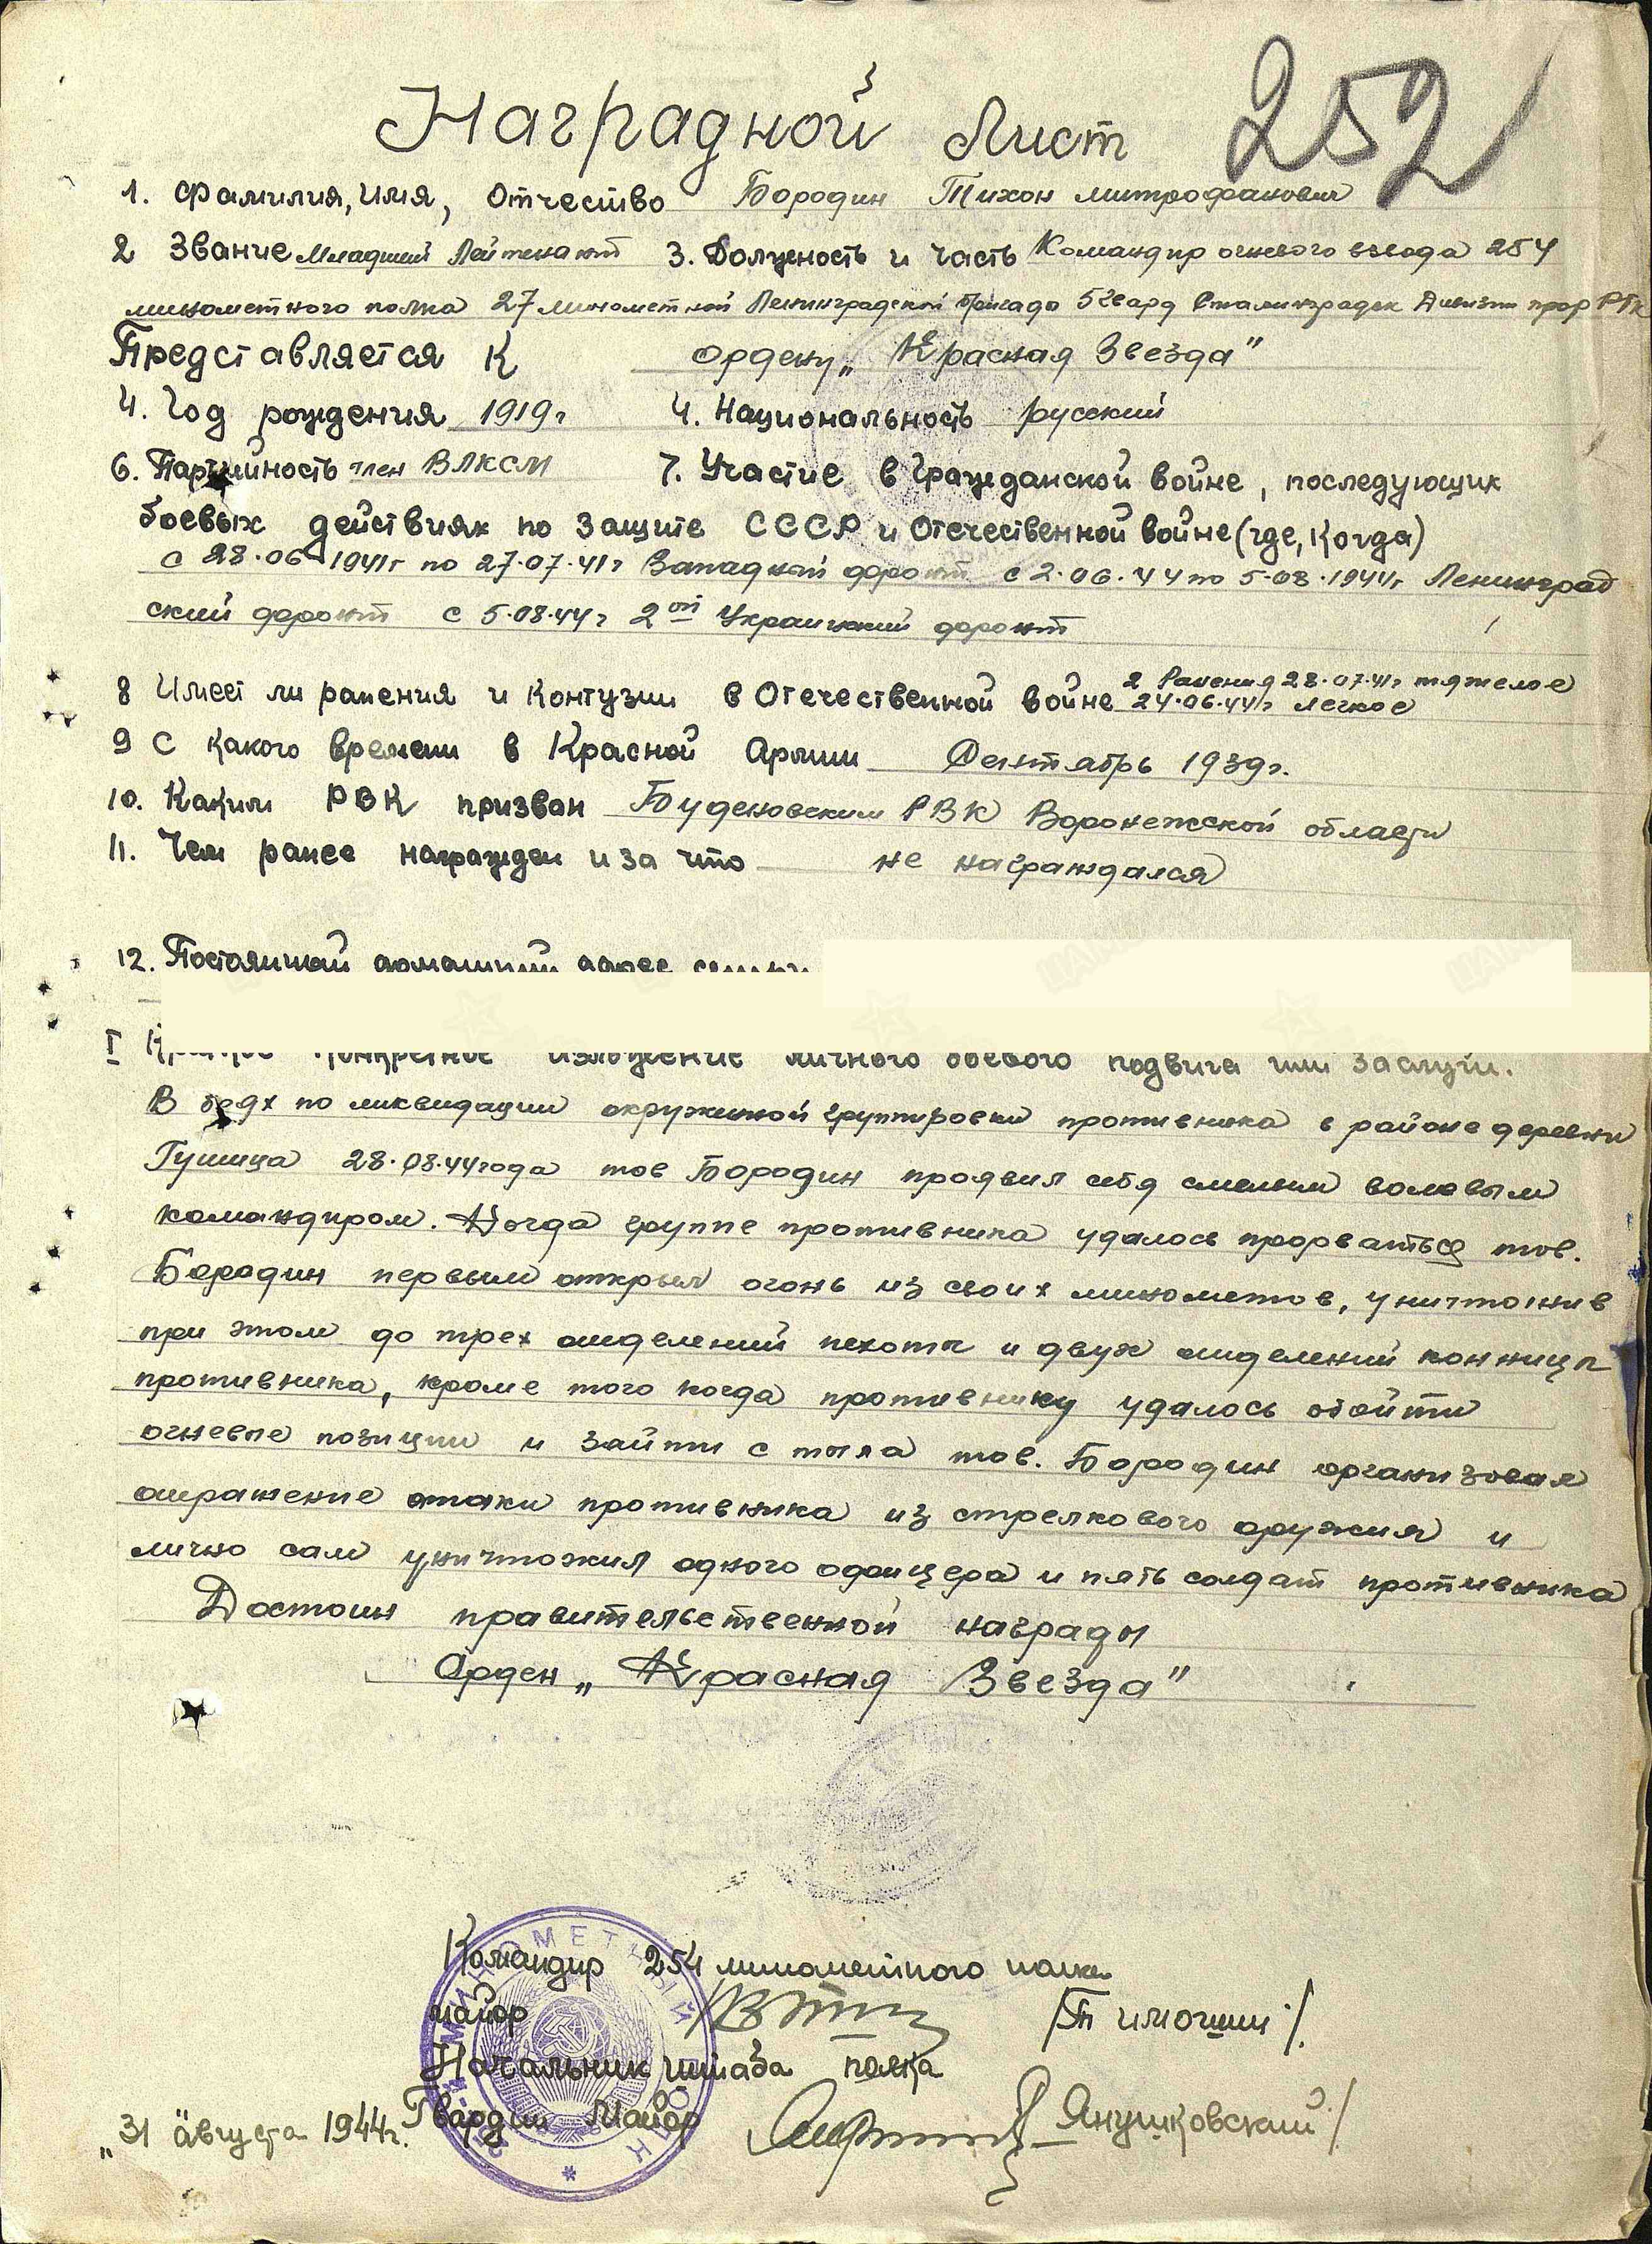 Наградной Лист 252
1. Фамилия, Имя, Отчество Бородин Тихон Митрофанович
2 Звание Младший Лейтенант 3. Должность и часть Командир огневого взвода 254
минометного полка 27 минометной Ленинградской бригады 5 Гвард Сталинградск Дивизии прор РГК
Представляется к ордену „Красная Звезда"
4. Год рождения 1919г 4. Национальность русский
6. Партийность член ВЛКСМ 7. Участие в гражданской войне, последующих
боевых действиях по защите СССР и Отечественной войне (где, когда)
с 28.06.1941г по 27.07.41г Западный фронт с 2.06.44 по 5.08.1944г Ленинград
ский фронт с 5.08.44г 2ой Украинский фронт
8 Имеет ли ранения и контузии в Отечественной войне 2 Ранения 28.07.41г тяжелое
24.06.44г легкое
9 С какого времени в Красной Армии Сентябрь 1939г.
10. Каким РВК призван Буденовским РВК Воронежской области
11. Чем ранее награжден и за что не награждался
12. Постоянный домашний адрес семьи
I Краткое конкретное изложение личного боевого подвига или заслуги.
В боях по ликвидации окруженной группировки противника в районе деревни
Гушица 28.08.44 года тов Бородин проявил себя смелым волевым
командиром. Когда группе противника удалось прорваться тов.
Бородин первым открыл огонь из своих минометов, уничтожив
при этом до трех отделений пехоты и двух отделений конницы
противника, кроме того когда противнику удалось обойти
огневые позиции и зайти с тыла тов. Бородин организовал
отражение атаки противника из стрелкового оружия и
лично сам уничтожил одного офицера и пять солдат противника
Достоин правительственной награды
Орден „Красная Звезда"
Командир 254 минометного полка
майор /Тимошин/.
Начальник штаба полка
Гвардии Майор Янушковский/
„31 августа 1944г.